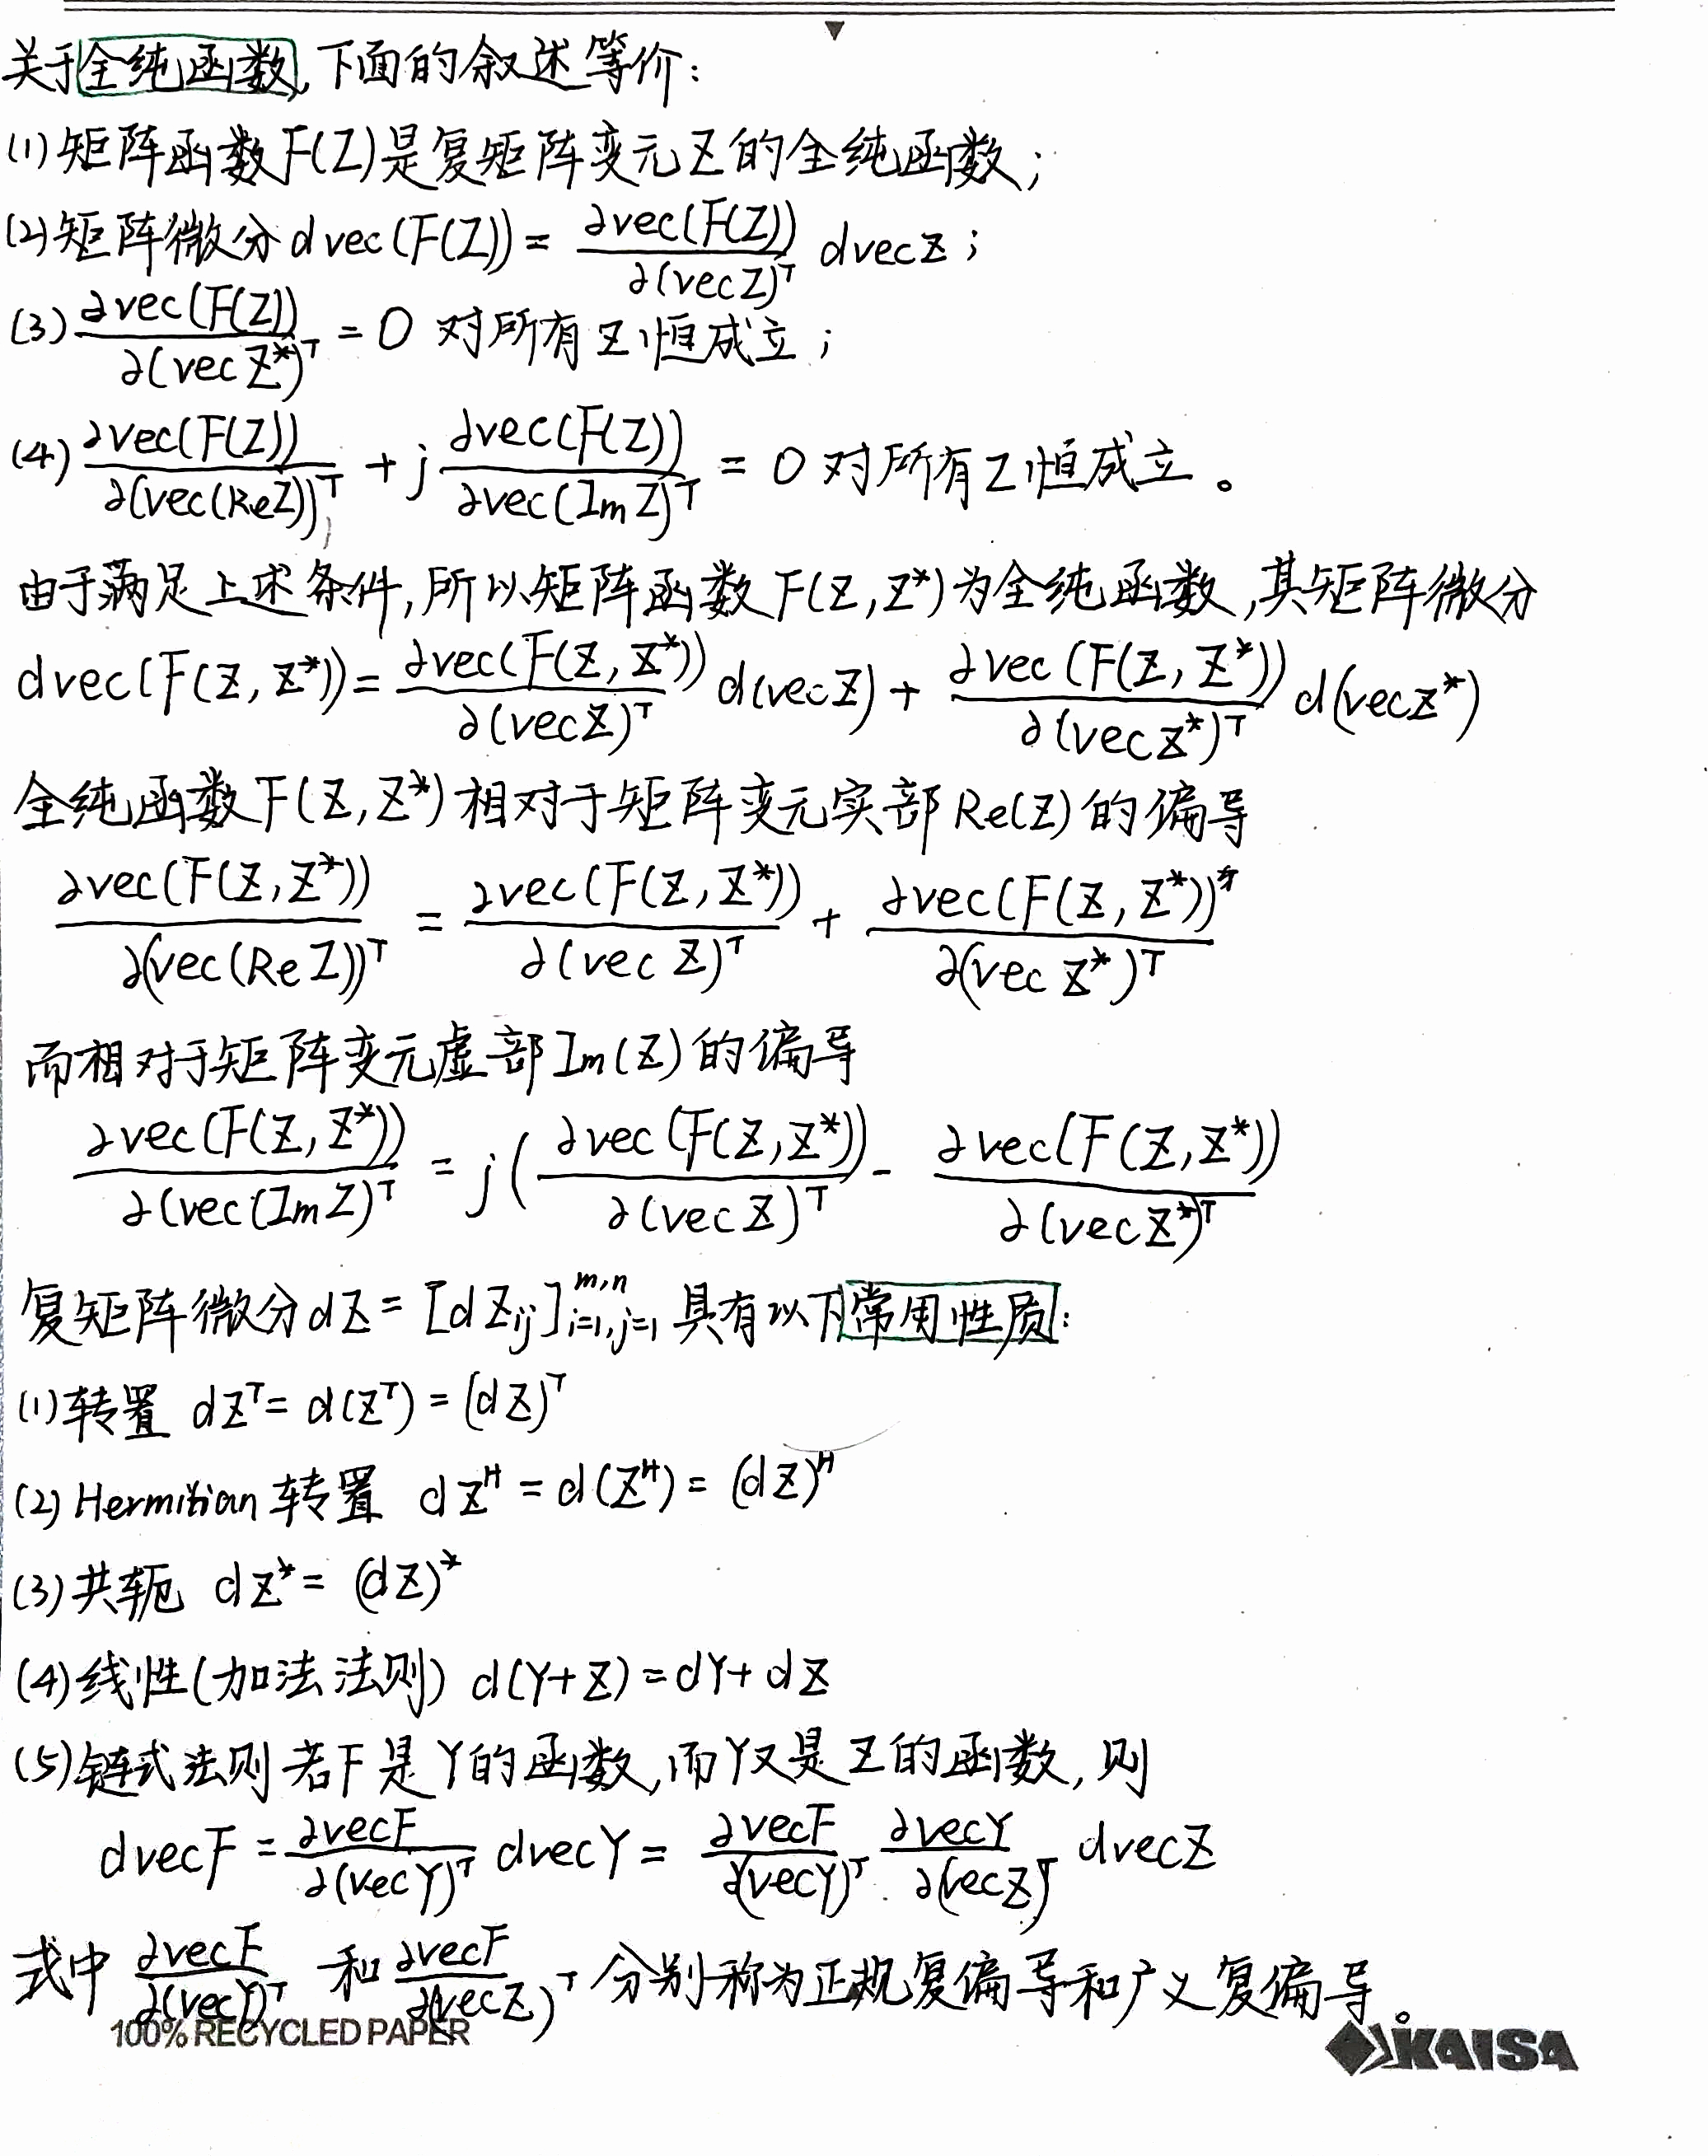 关于全纯函数,下面的叙述等价:
(1)矩阵函数F(Z)是复矩阵变元Z的全纯函数;
(2)矩阵微分 dvec(F(Z)) = ∂vec(F(Z))/∂(vecZ)^T dvecZ ;
(3) ∂vec(F(Z))/∂(vecZ*)^T = O 对所有Z恒成立;
(4) ∂vec(F(Z))/∂(vec(ReZ))^T + j ∂vec(F(Z))/∂vec(ImZ)^T = O 对所有Z恒成立。
由于满足上述条件,所以矩阵函数F(Z,Z*)为全纯函数,其矩阵微分
dvec(F(Z,Z*)) = ∂vec(F(Z,Z*))/∂(vecZ)^T d(vecZ) + ∂vec(F(Z,Z*))/∂(vecZ*)^T d(vecZ*)
全纯函数F(Z,Z*)相对于矩阵变元实部Re(Z)的偏导
∂vec(F(Z,Z*))/∂(vec(ReZ))^T = ∂vec(F(Z,Z*))/∂(vecZ)^T + ∂vec(F(Z,Z*))*/∂(vecZ*)^T
而相对于矩阵变元虚部Im(Z)的偏导
∂vec(F(Z,Z*))/∂(vec(ImZ)^T = j(∂vec(F(Z,Z*))/∂(vecZ)^T - ∂vec(F(Z,Z*))/∂(vecZ*)^T
复矩阵微分dZ = [dZij]_{i=1,j=1}^{m,n} 具有以下常用性质:
(1)转置 dZ^T = d(Z^T) = (dZ)^T
(2) Hermitian转置 dZ^H = d(Z^H) = (dZ)^H
(3)共轭 dZ* = (dZ)*
(4)线性(加法法则) d(Y+Z) = dY + dZ
(5)链式法则 若F是Y的函数,而Y又是Z的函数,则
dvecF = ∂vecF/∂(vecY)^T dvecY = ∂vecF/∂(vecY)^T ∂vecY/∂(vecZ)^T dvecZ
式中 ∂vecF/∂(vecY)^T 和 ∂vecF/∂(vecZ)^T 分别称为正规复偏导和广义复偏导。
100% RECYCLED PAPER
KAISA